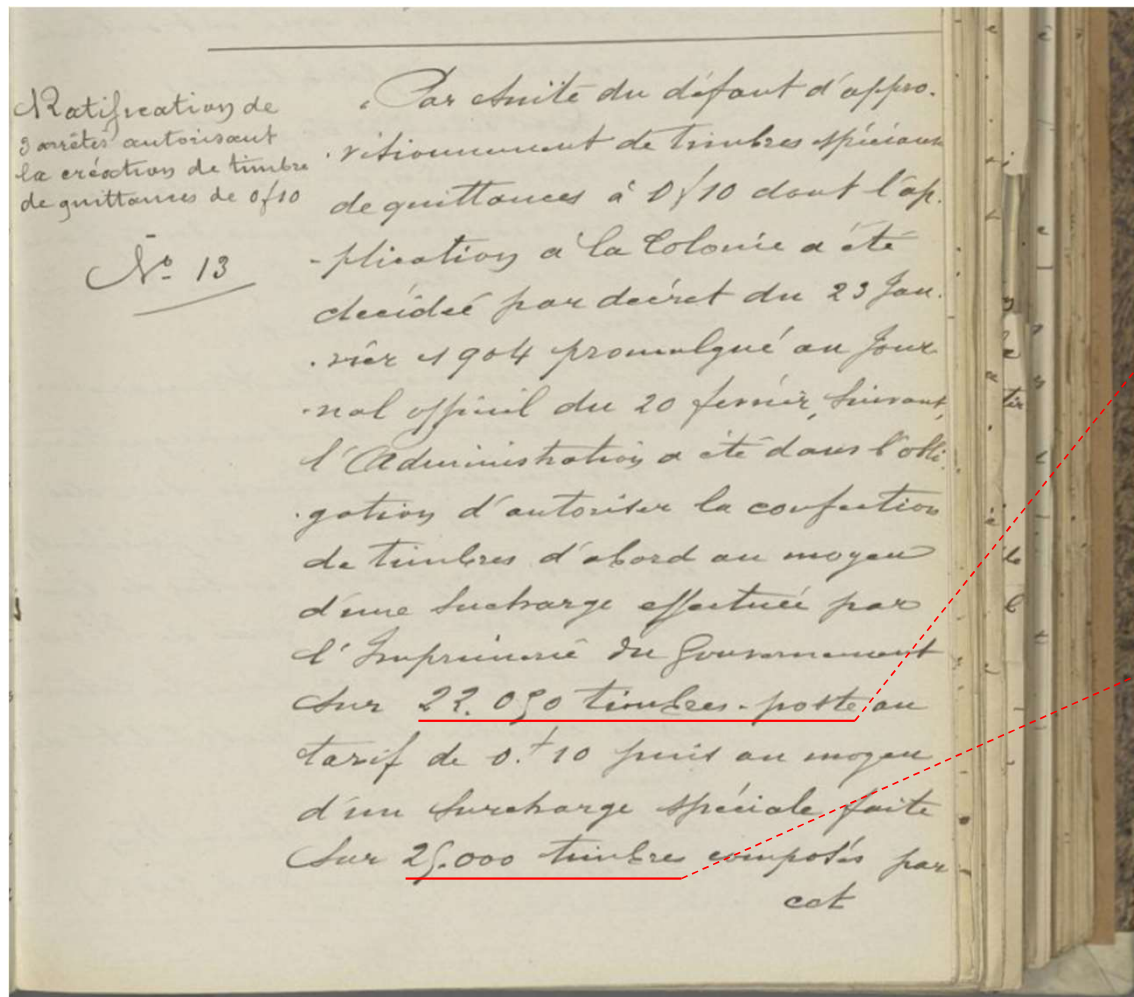 Ratification de
3 arrêtés autorisant
la création de timbre
de quittances de 0f10
N° 13
"Par suite du défaut d'appro-
-visionnement de timbres spéciaux
de quittances à 0f10 dont l'ap-
-plication à la Colonie a été
décidée par décret du 23 Jan-
-vier 1904 promulgué au Jour-
-nal officiel du 20 février, suivant,
l'Administration a été dans l'obli-
-gation d'autoriser la confection
de timbres d'abord au moyen
d'une surcharge effectuée par
l'Imprimerie du Gouvernement
sur 22.050 timbres-poste au
tarif de 0.f10 puis au moyen
d'un surcharge spéciale faite
sur 25.000 timbres composés par
cet